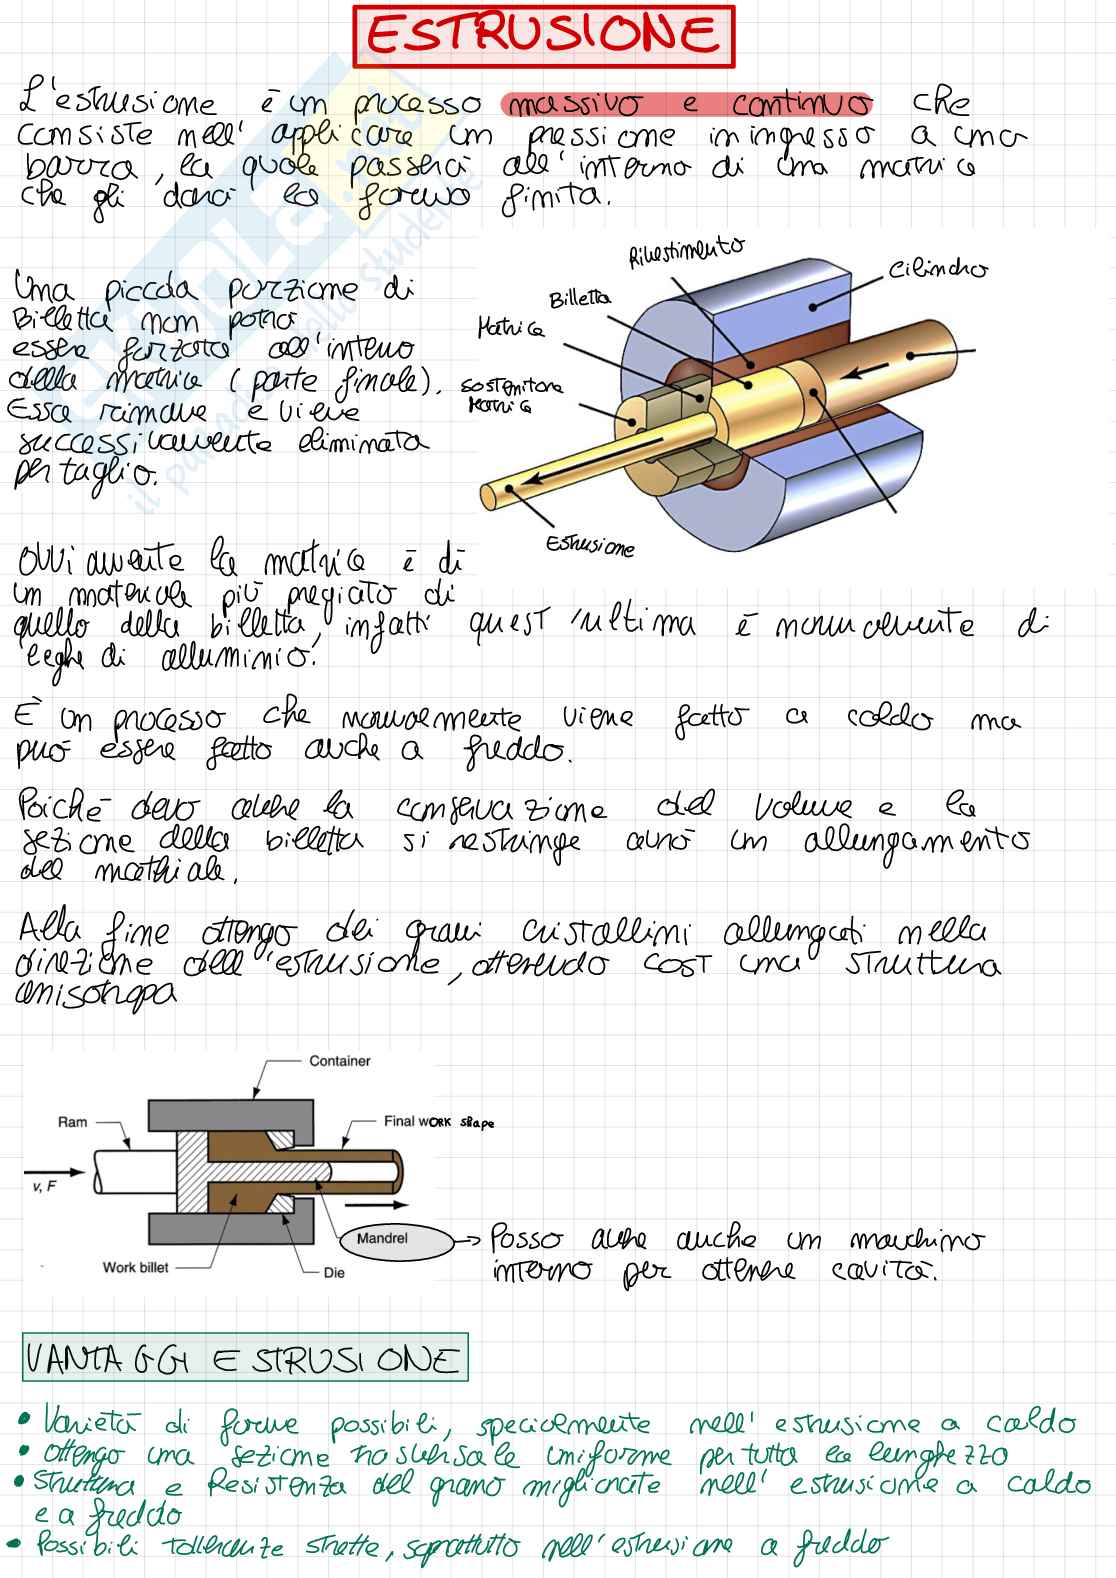 ESTRUSIONE
L'estrusione è un processo massivo e continuo che
consiste nell' applicare un pressione in ingresso a una
barra, la quale passerà all'interno di una matrice
che gli darà la forma finita.
Una piccola porzione di
Billetta non potrà
essere forzata all'interno
della matrice (parte finale).
Essa rimane e viene
successivamente eliminata
per taglio.
Rivestimento
Cilindro
Billetta
Matrice
Sostenitore
Matrice
Estrusione
Ovviamente la matrice è di
un materiale più pregiato di
quello della billetta, infatti quest'ultima è normalmente di
leghe di alluminio.
È un processo che normalmente viene fatto a caldo ma
può essere fatto anche a freddo.
Poichè devo avere la conservazione del volume e la
sezione della billetta si restringe avrò un allungamento
del materiale.
Alla fine ottengo dei grani cristallini allungati nella
direzione dell'estrusione, ottenendo così una struttura
anisotropa
Container
Ram
Final work shape
v, F
Mandrel
Work billet
Die
Posso avere anche un maschino
interno per ottenere cavità.
VANTAGGI ESTRUSIONE
• Varietà di forme possibili, specialmente nell' estrusione a caldo
• Ottengo una sezione trasversale uniforme per tutta la lunghezza
• Struttura e Resistenza del grano migliorate nell' estrusione a caldo
e a freddo
• Possibili tolleranze strette, soprattutto nell'estrusione a freddo